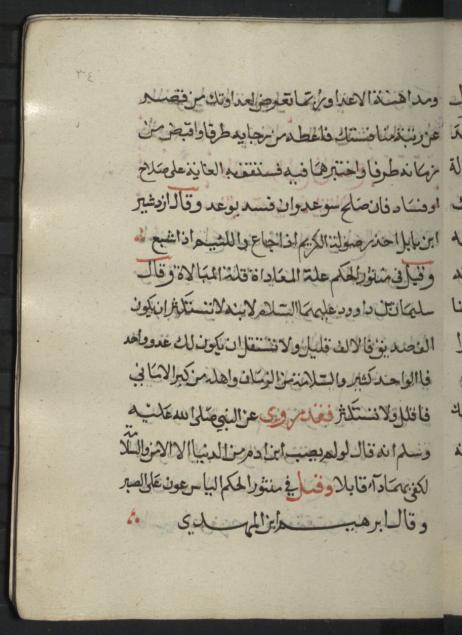 ٣٤
ومداهنة الاعداء وربما تعرض لعداوتك من قصر
عن رتبة منافستك فاعطه من رجايه طرفا واقبض من
زمانه طرفا واختبرهما فيه فستقفه العاقبة على صلاح
او فساد فان صلح سوعد وان فسد بوعد وقال ازدشير
ابن بابل احذر صولة الكريم اذا جاع واللئيم اذا شبع
وقيل في منثور الحكم علة المعاداة قلة المبالاة وقال
سليمان بن داوود عليهما السلام لابنه لا تستكثر ان يكون
الف صديق فالالف قليل ولا تستقل ان يكون لك عدو واحد
فالواحد كثير والسلامة من الزمان واهله من كبر الاماني
فاقلل ولا تستكثر فقد روي عن النبي صلى الله عليه
وسلم انه قال لو لم يصب ابن ادم من الدنيا الا الامن والسلامة
لكفى بهما داء قاتلا وقيل في منثور الحكم الياس عون على الصبر
وقال ابرهيم ابن المهدي